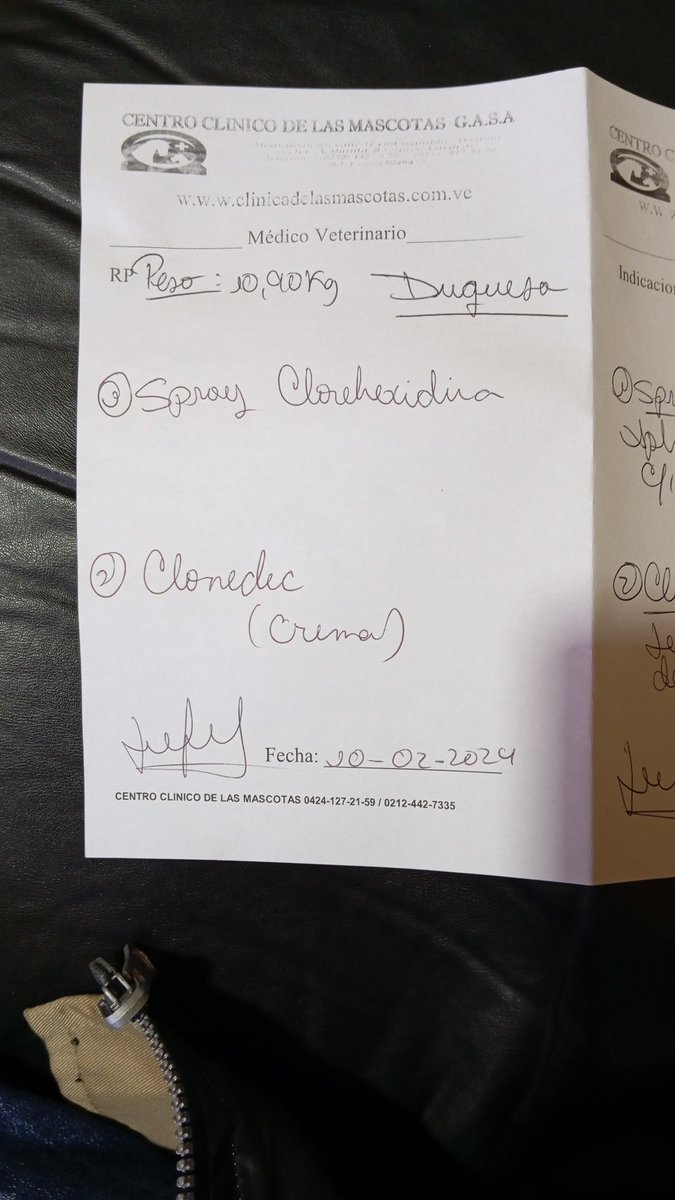 CENTRO CLINICO DE LAS MASCOTAS G.A.S.A
W.w.w.clinicadelasmascotas.com.ve
Médico Veterinario
RP Peso: 10,90Kg Duquesa
① Spray Clorehexidina
② Clonedec
(Crema)
Fecha: 10-02-2024
CENTRO CLINICO DE LAS MASCOTAS 0424-127-21-59 / 0212-442-7335
CENTRO C
W.W.
Indicacion
① Spr
② Cl